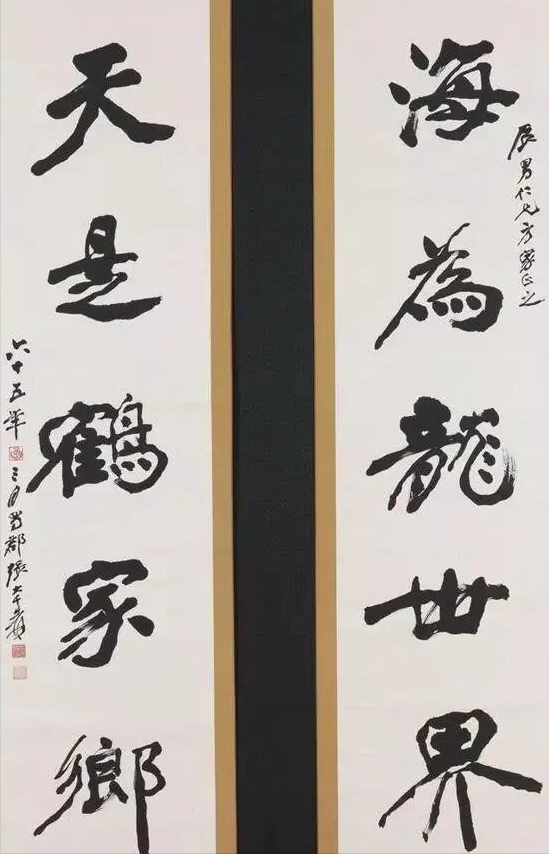 海為龍世界
展男仁兄方家正之
天是鶴家鄉
六十五年
三月蜀郡張大千爰